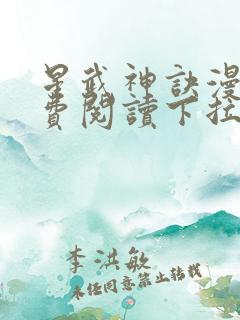 星武神訣漫
費閱讀下拉
李洪敏
未经同意禁止转载